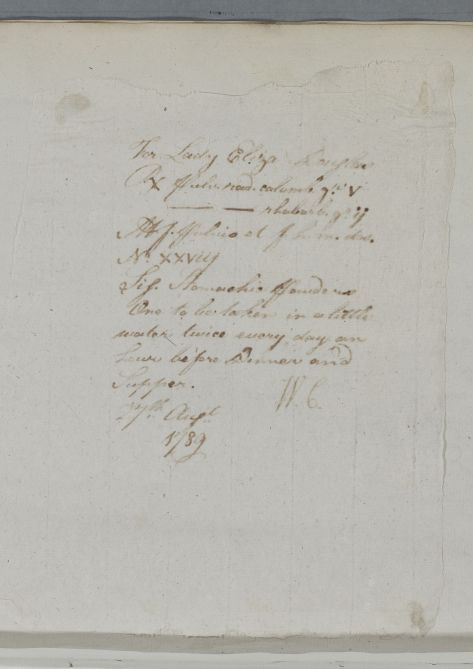 For Lady Eliza Douglas
Rx Pulv. rad. calomb. gr. V
—— — rhubarb. gr. ij
M. f. Pulvis et f. h. m. dos.
No. XXVIIj
Sig. Stomachic Powders
One to be taken in a little
water twice every day an
hour before Dinner and
Supper. W. C.
27th Augt
1789